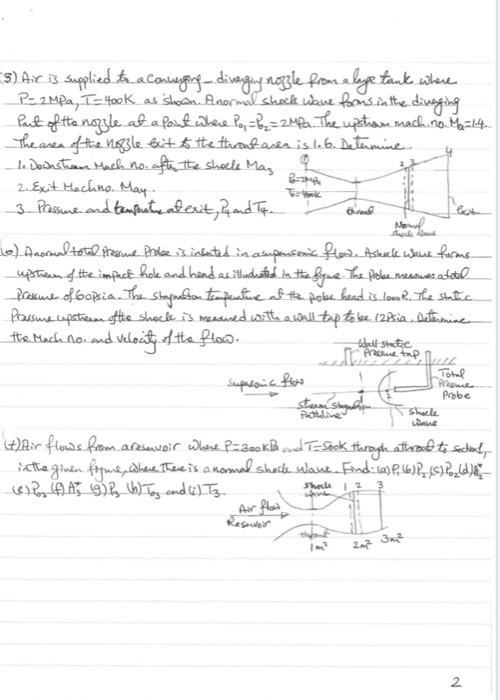 (5) Air is supplied to a converging-diverging nozzle from a large tank where
P=2MPa, T=400K as shown. A normal shock wave forms in the diverging
Part of the nozzle at a point where P01=P02=2MPa. The upstream mach. no. M2=1.4.
The area of the nozzle exit to the throat area is 1.6. Determine.
1. Downstream Mach no. after the shock Ma3
2. Exit Mach no. Ma4.
3. Pressure and temperature at exit, P4 and T4.
P0=2MPa
T0=400K
throat
2 3
4
Exit
Normal
shock wave
(6) A normal total Pressure Probe is inserted in a supersonic flow. A shock wave forms
upstream of the impact hole and head as illustrated in the figure. The Probe measures a total
Pressure of 60Psia. The stagnation temperature at the probe head is 1000R. The static
Pressure upstream of the shock is measured with a wall tap to be 12Psia. Determine
the Mach no. and velocity of the flow.
Wall static
Pressure tap
Supersonic flow
1
Total
Pressure
Probe
stagnation
Pathline
Shock
wave
(7) Air flows from a reservoir where P=300kPa and T=500K through a throat to section 1,
in the given figure, where there is a normal shock wave. Find: (a) P1 (b) P2 (c) P02 (d) A2*
(e) P03 (f) A3* (g) P3 (h) T03 and (i) T3.
Shock
wave
1 2 3
Air flow
Reservoir
throat
1m²
2m²
3m²
2